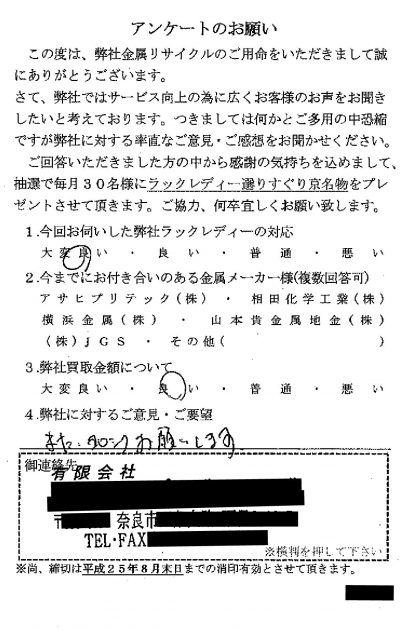 アンケートのお願い
この度は、弊社金属リサイクルのご用命をいただきまして誠
にありがとうございます。
さて、弊社ではサービス向上の為に広くお客様のお声をお聞き
したいと考えております。つきましては何かとご多用の中恐縮
ですが弊社に対する率直なご意見・ご感想をお聞かせください。
ご回答いただきました方の中から感謝の気持ちを込めまして、
抽選で毎月30名様にラックレディー選りすぐり京名物をプレ
ゼントさせて頂きます。ご協力、何卒宜しくお願い致します。
1.今回お伺いした弊社ラックレディーの対応
大変良い・良い・普通・悪い
2.今までにお付き合いのある金属メーカー様(複数回答可)
アサヒプリテック(株)・相田化学工業(株)
横浜金属(株)・山本貴金属地金(株)
(株)JGS・その他( )
3.弊社買取金額について
大変良い・良い・普通・悪い
4.弊社に対するご意見・ご要望
また、お願いします。
御連絡先
有限会社
〒 奈良市
TEL・FAX
※横判を押して下さい
※尚、締切は平成25年8月末日までの消印有効とさせて頂きます。